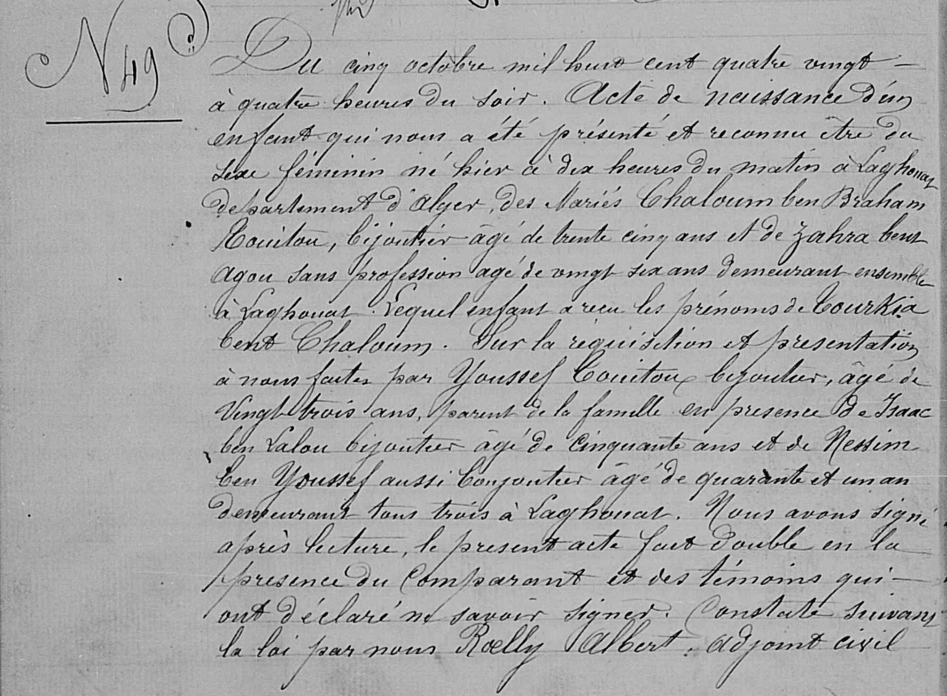 N 49
Du cinq octobre mil huit cent quatre vingt —
à quatre heures du soir. Acte de naissance d'un
enfant qui nous a été présenté et reconnu être du
sexe féminin né hier à dix heures du matin à Laghouat
département d'Alger, des Mariés Chaloum ben Braham
Touitou, bijoutier âgé de trente cinq ans et de Zahra bent
Agou sans profession agé de vingt six ans demeurant ensemble
à Laghouat. Lequel enfant a recu les prénoms de Tourkia
bent Chaloum. Sur la réquisition et présentation
à nous faites par Youssef Touitou bijoutier, âgé de
Vingt trois ans, parent de la famille en présence de Isaac
ben Lalou bijoutier âgé de cinquante ans et de Nessim
ben Youssef aussi boujoutier âgé de quarante et un an
demeurant tous trois à Laghouat. Nous avons signé
après lecture, le présent acte fait double en la
présence du Comparant et des témoins qui —
ont déclaré ne savoir signer. Constaté suivant
la loi par nous Rœlly Albert, adjoint civil